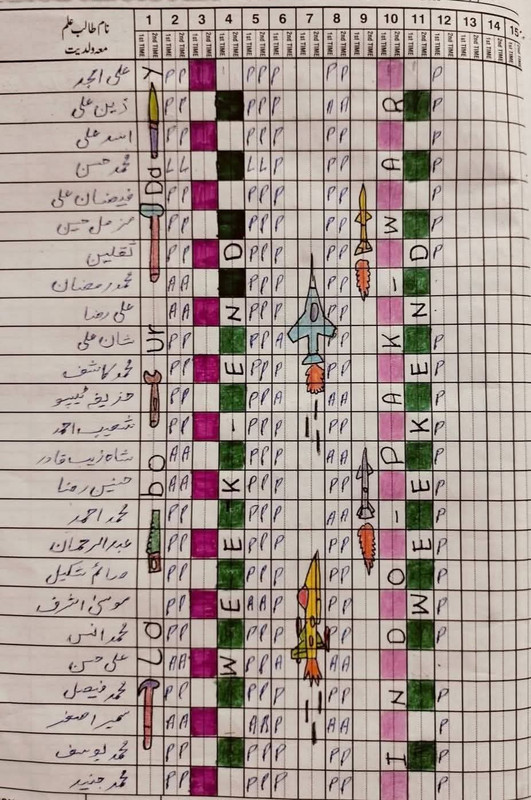 نام طالب علم 1 2 3 4 5 6 7 8 9 10 11 12 13 14 15
معہ ولدیت 1st TIME 2nd TIME 1st TIME 2nd TIME 1st TIME 2nd TIME 1st TIME 2nd TIME 1st TIME 2nd TIME 1st TIME 2nd TIME 1st TIME 2nd TIME 1st TIME 2nd TIME 1st TIME 2nd TIME 1st TIME 2nd TIME 1st TIME 2nd TIME 1st TIME 2nd TIME 1st TIME 2nd TIME 1st TIME 2nd TIME 1st TIME 2nd TIME
La bo ur Da y
WEEK-END
INDO-PAK-WAR
WEEKEND
علی امجد P P P P P P P P
زین علی P P P P P A A P
اسد علی P P P P P P P P
محمد حسن L L L L P P P P
فیضان علی P P P P P P P P
مزمل حسین P P P P P P P P
ثقلین P P P P P P P P
محمد رمضان A A P P P A A P
علی رضا A A P P P P P P
شان علی P P P P A P P P
محمد کاشف P P P P P P P P
حذیفہ ٹیپو P P P P A A A P
شعیب احمد P P P P P P P P
شاہ زیب قادر A A P P P A A P
حسنین رضا A A P P P P P P
محمد احمد P P P P P A A P
عبدالرحمان P P P P P P P P
صائم شکیل P P P P P P P P
موسیٰ اشرف P P A A P P P P
محمد انس P P P P P P P P
علی حسن A A P P A A A P
محمد فیصل P P P P P P P P
سمیر اصغر A A A A P A A P
محمد یوسف P P P P P P P P
محمد جنید P P P P P P P P